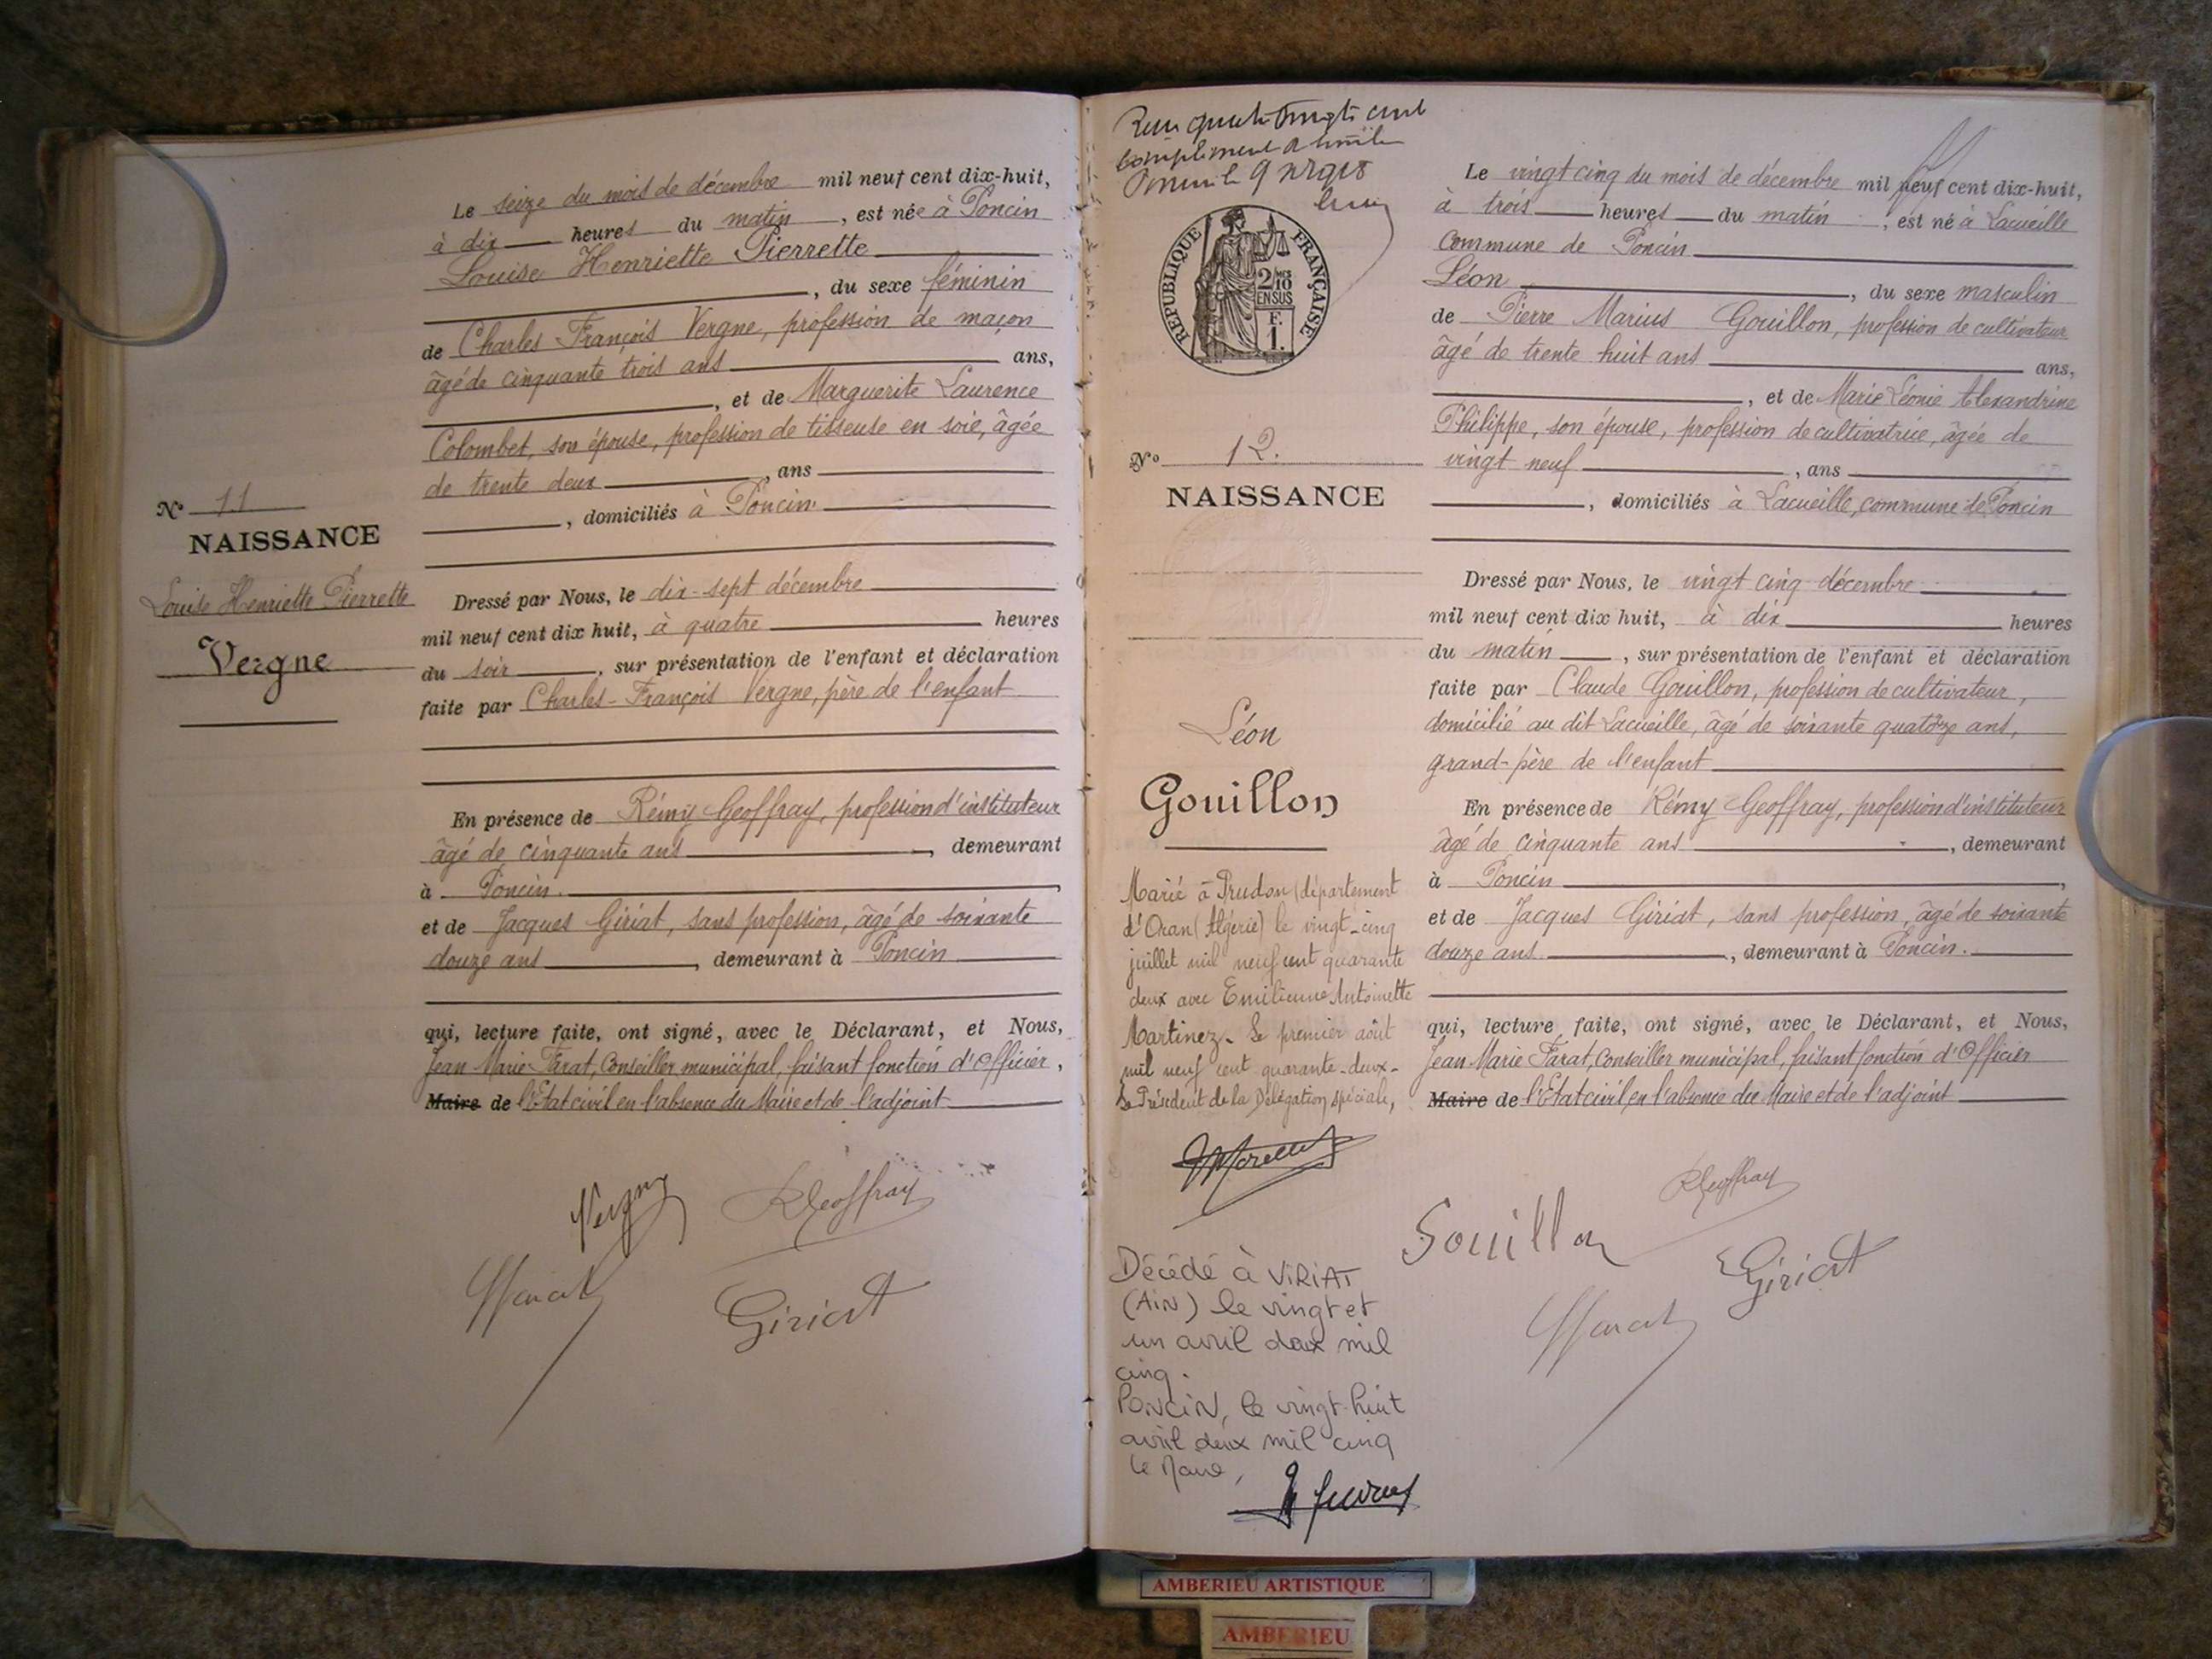 Le seize du mois de décembre mil neuf cent dix-huit,
à dix heures du matin, est née à Poncin
Louise Henriette Pierrette
, du sexe féminin
de Charles François Vergne, profession de maçon
âgé de cinquante trois ans ans,
, et de Marguerite Laurence
Colombet, son épouse, profession de tisseuse en soie, âgée
de trente deux, ans
, domiciliés à Poncin
N° 11
NAISSANCE
Louise Henriette Pierrette
Vergne
Dressé par Nous, le dix-sept décembre
mil neuf cent dix huit, à quatre heures
du soir, sur présentation de l'enfant et déclaration
faite par Charles-François Vergne, père de l'enfant
En présence de Rémy Geoffray, profession d'instituteur
âgé de cinquante ans, demeurant
à Poncin.
et de Jacques Giriat, sans profession, âgé de soixante
douze ans, demeurant à Poncin
qui, lecture faite, ont signé, avec le Déclarant, et Nous,
Jean Marie Farat, Conseiller municipal, faisant fonction d'Officier,
Maire de l'Etat civil en l'absence du Maire et de l'adjoint
Vergne
RGeoffray
Farat
Giriat
RÉPUBLIQUE FRANÇAISE
2/10 MES
EN SUS
F.
1.
N° 12.
NAISSANCE
Léon
Gouillon
Marié à Prudon (département
d'Oran (Algérie) le vingt-cinq
juillet mil neuf cent quarante
deux avec Emilienne Antoinette
Martinez. Le premier août
mil neuf cent quarante-deux-
Le Président de la Délégation spéciale,
Décédé à VIRIAT
(AIN) le vingt et
un avril deux mil
cinq.
PONCIN, le vingt-huit
avril deux mil cinq
le Maire,
Le vingt cinq du mois de décembre mil neuf cent dix-huit,
à trois heures du matin, est né à Lacueille
commune de Poncin
Léon, du sexe masculin
de Pierre Marius Gouillon, profession de cultivateur
âgé de trente huit ans ans,
, et de Marie Léonie Alexandrine
Philippe, son épouse, profession de cultivatrice, âgée de
vingt neuf, ans
, domiciliés à Lacueille, commune de Poncin
Dressé par Nous, le vingt cinq décembre
mil neuf cent dix huit, à dix heures
du matin, sur présentation de l'enfant et déclaration
faite par Claude Gouillon, profession de cultivateur,
domicilié au dit Lacueille, âgé de soixante quatorze ans,
grand-père de l'enfant
En présence de Rémy Geoffray, profession d'instituteur
âgé de cinquante ans, demeurant
à Poncin,
et de Jacques Giriat, sans profession, âgé de soixante
douze ans., demeurant à Poncin.
qui, lecture faite, ont signé, avec le Déclarant, et Nous,
Jean Marie Farat, Conseiller municipal, faisant fonction d'Officier
Maire de l'Etat civil en l'absence du Maire et de l'adjoint
RGeoffray
Gouillon
Giriat
Farat
AMBERIEU ARTISTIQUE
AMBERIEU